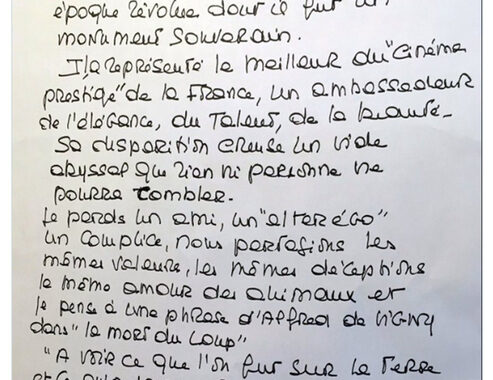 époque révolue dont il fut un
monument souverain.
Il a représenté le meilleur du "cinéma
prestige" de la France, un ambassadeur
de l'élégance, du Talent, de la beauté.
Sa disparition creuse un vide
abyssal que rien ni personne ne
pourra combler.
Je perds un ami, un "alter égo"
un complice, nous partagions les
mêmes valeurs, les mêmes déceptions
le même amour des animaux et
je pense à une phrase d'Alfred de VIGNY
dans "la mort du Loup"
"A voir ce que l'on fut sur la Terre
et ce que